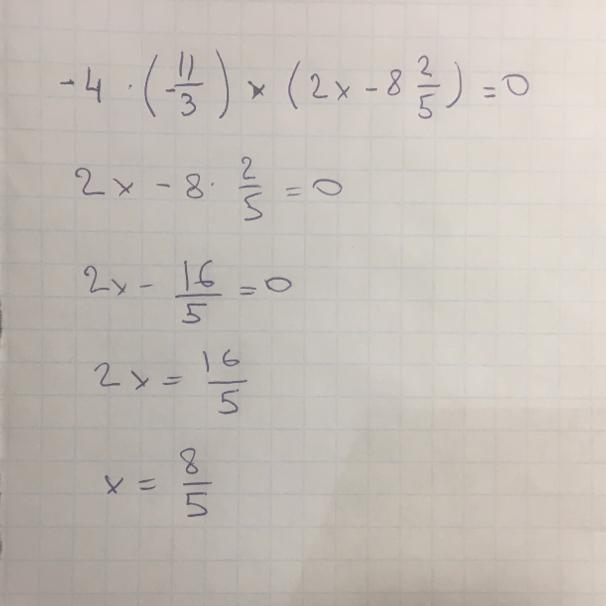 -4 · (11/-3) × (2x - 8 2/5) = 0
2x - 8 · 2/5 = 0
2x - 16/5 = 0
2x = 16/5
x = 8/5